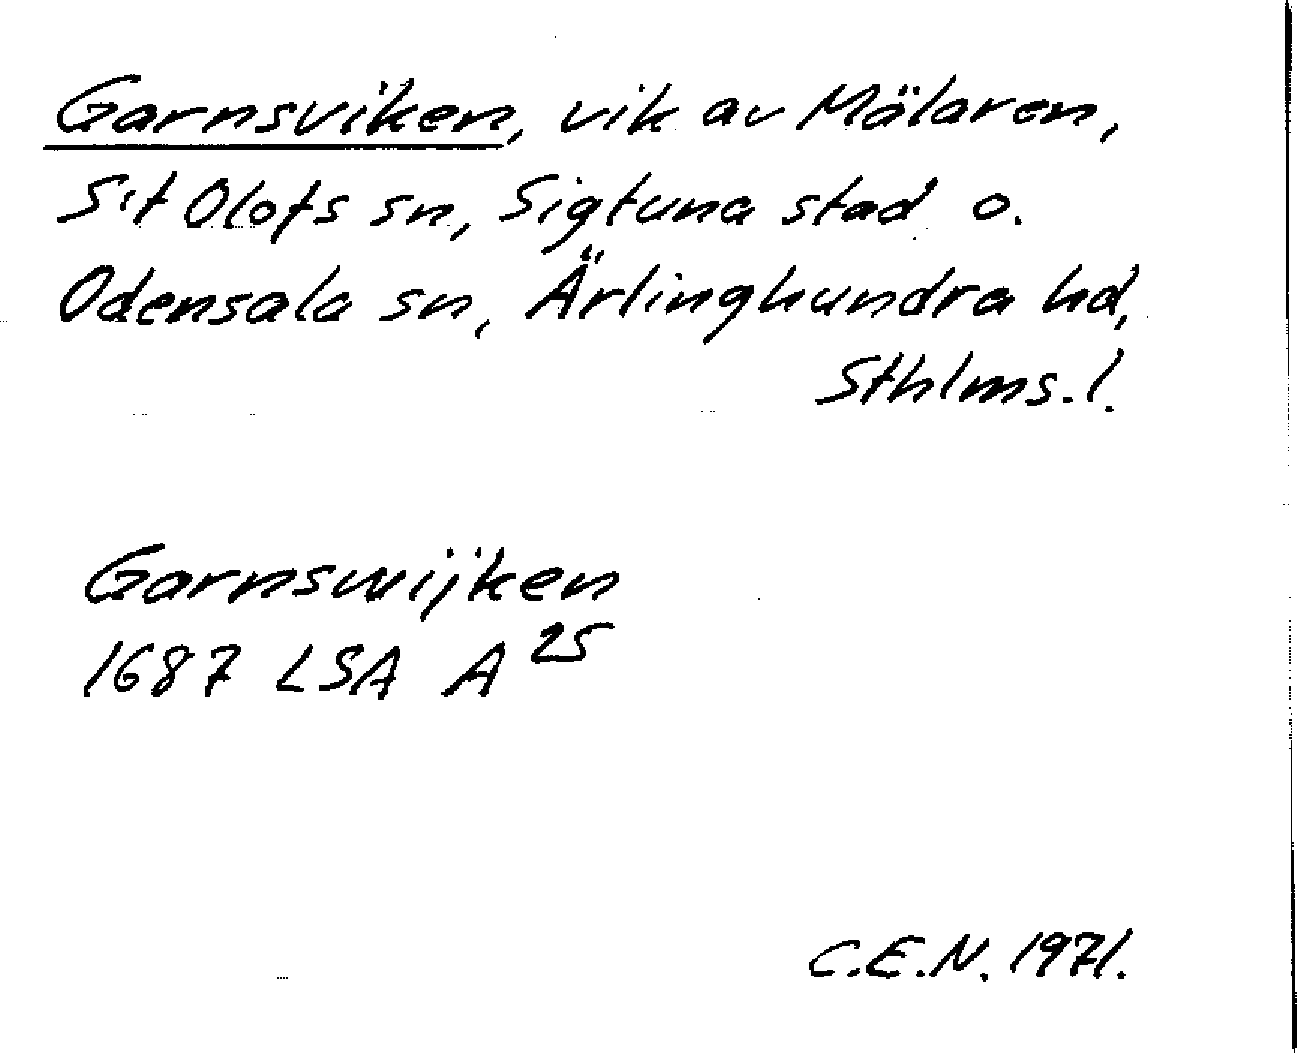 Garnsviken, vik av Mälaren,
S:t Olofs sn, Sigtuna stad o.
Odensala sn, Ärlinghundra hd,
Sthlms. l.
Garnswijken
1687 LSA A 25
C.E.N. 1971.